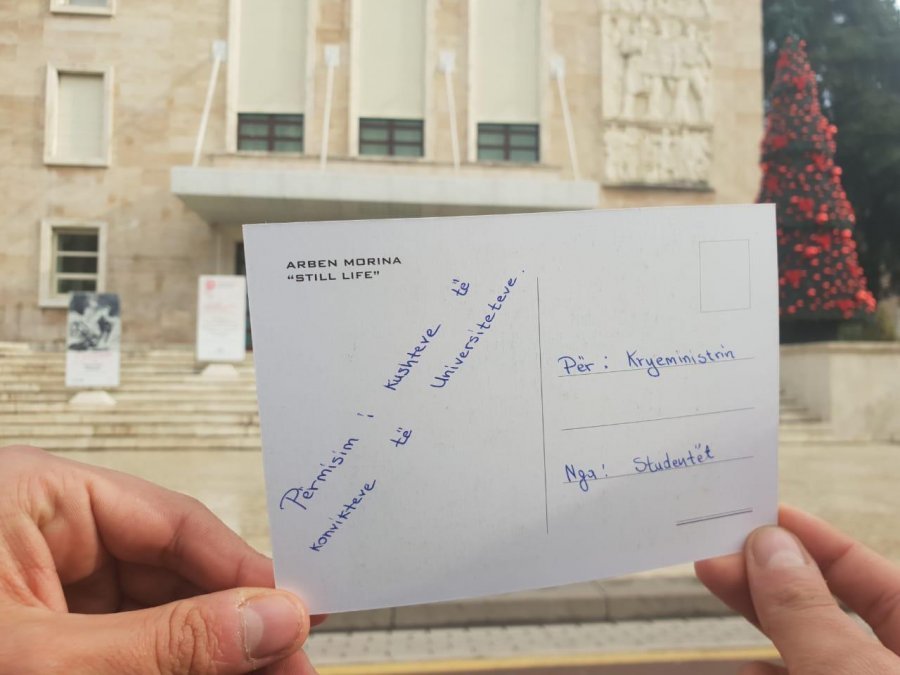 ARBEN MORINA
"STILL LIFE"
Përmisim i kushteve të
konvikteve të Universiteteve.
Për: Kryeministrin
Nga: Studentët